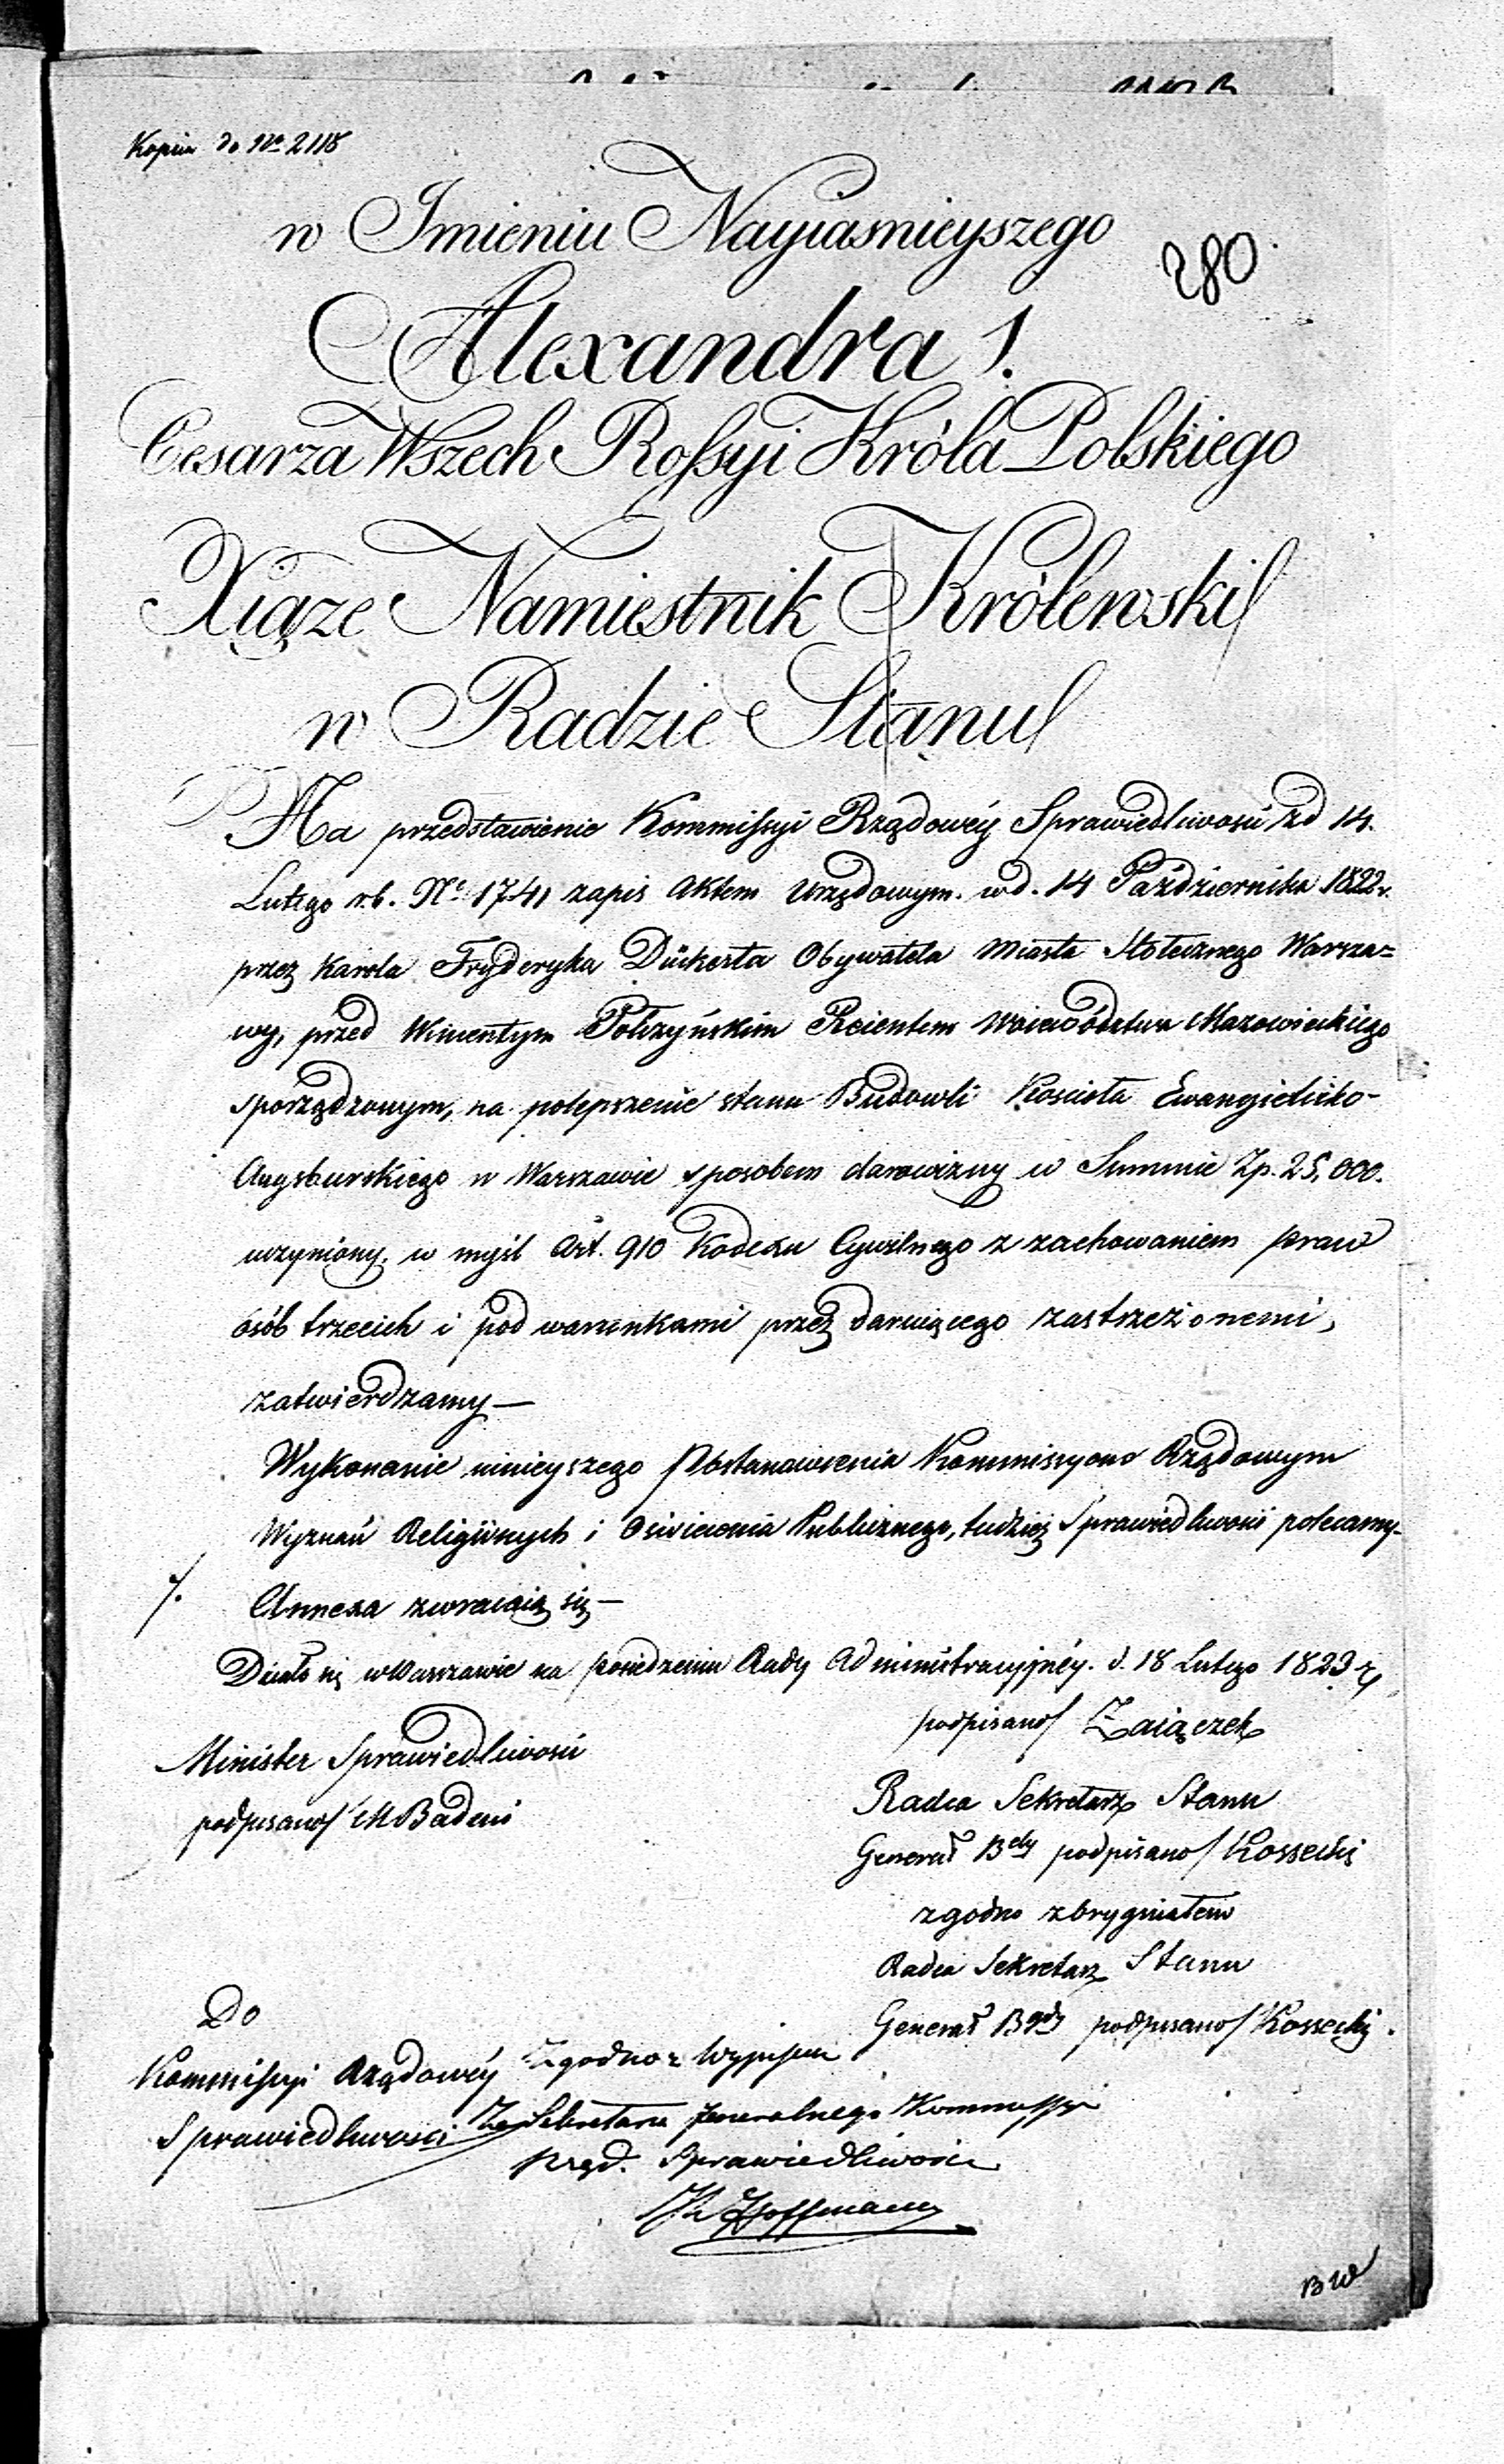 Kopia do Nro 2118
w Imieniu Nayiasnieyszego
280.
Alexandra I.
Cesarza Wszech Rossyi Króla Polskiego
Xiąże Namiestnik Królewski
w Radzie Stanu
Na przedstawienie Kommissyi Rządowéy Sprawiedliwosci z d 14.
Lutego r.b. No 1741 zapis Aktem Urzędowym. w d. 14 Października 1822 r.
przez Karola Fryderyka Dückerta Obywatela Miasta Stołecznego Warsza=
wy, przed Wincentym Rejentem Woiewództwa Mazowieckiego
sporządzonym, na polepszenie stanu Budowli Koscioła Ewangielicko-
Augsburskiego w Warszawie sposobem darowizny w Summie Zp. 25,000.
uczyniony. w myśl Art. 910 Kodexu Cywilnego z zachowaniem praw
osób trzecich i pod warunkami przez daruiącego zastrzeżonemi,
zatwierdzamy—
Wykonanie ninieyszego Postanowienia Kommissyom Rządowym
Wyznań Religiinych i Oswiecenia Publicznego, tudzież Sprawiedliwosci polecamy-
/. Annexa zwracaią się—
Działo się w Warszawie na posiedzeniu Rady Administracyjnéy. d. 18 Lutego 1823 r.
podpisano/ Zaiączek
Minister Sprawiedliwosci
podpisano/ M Badeni
Radca Sekretarz Stanu
Generał Bdy podpisano/ Kossecki
zgodno z Oryginałem
Radca Sekretarz Stanu
Generał Bdy podpisano/ Kossecki.
Do
Kommissyi Rządowéy
Sprawiedliwosci
Zgodno z Wypisem
Za Sekretarza Jeneralnego Kommissyi
Rząd. Sprawiedliwości
Hoffmann
BW